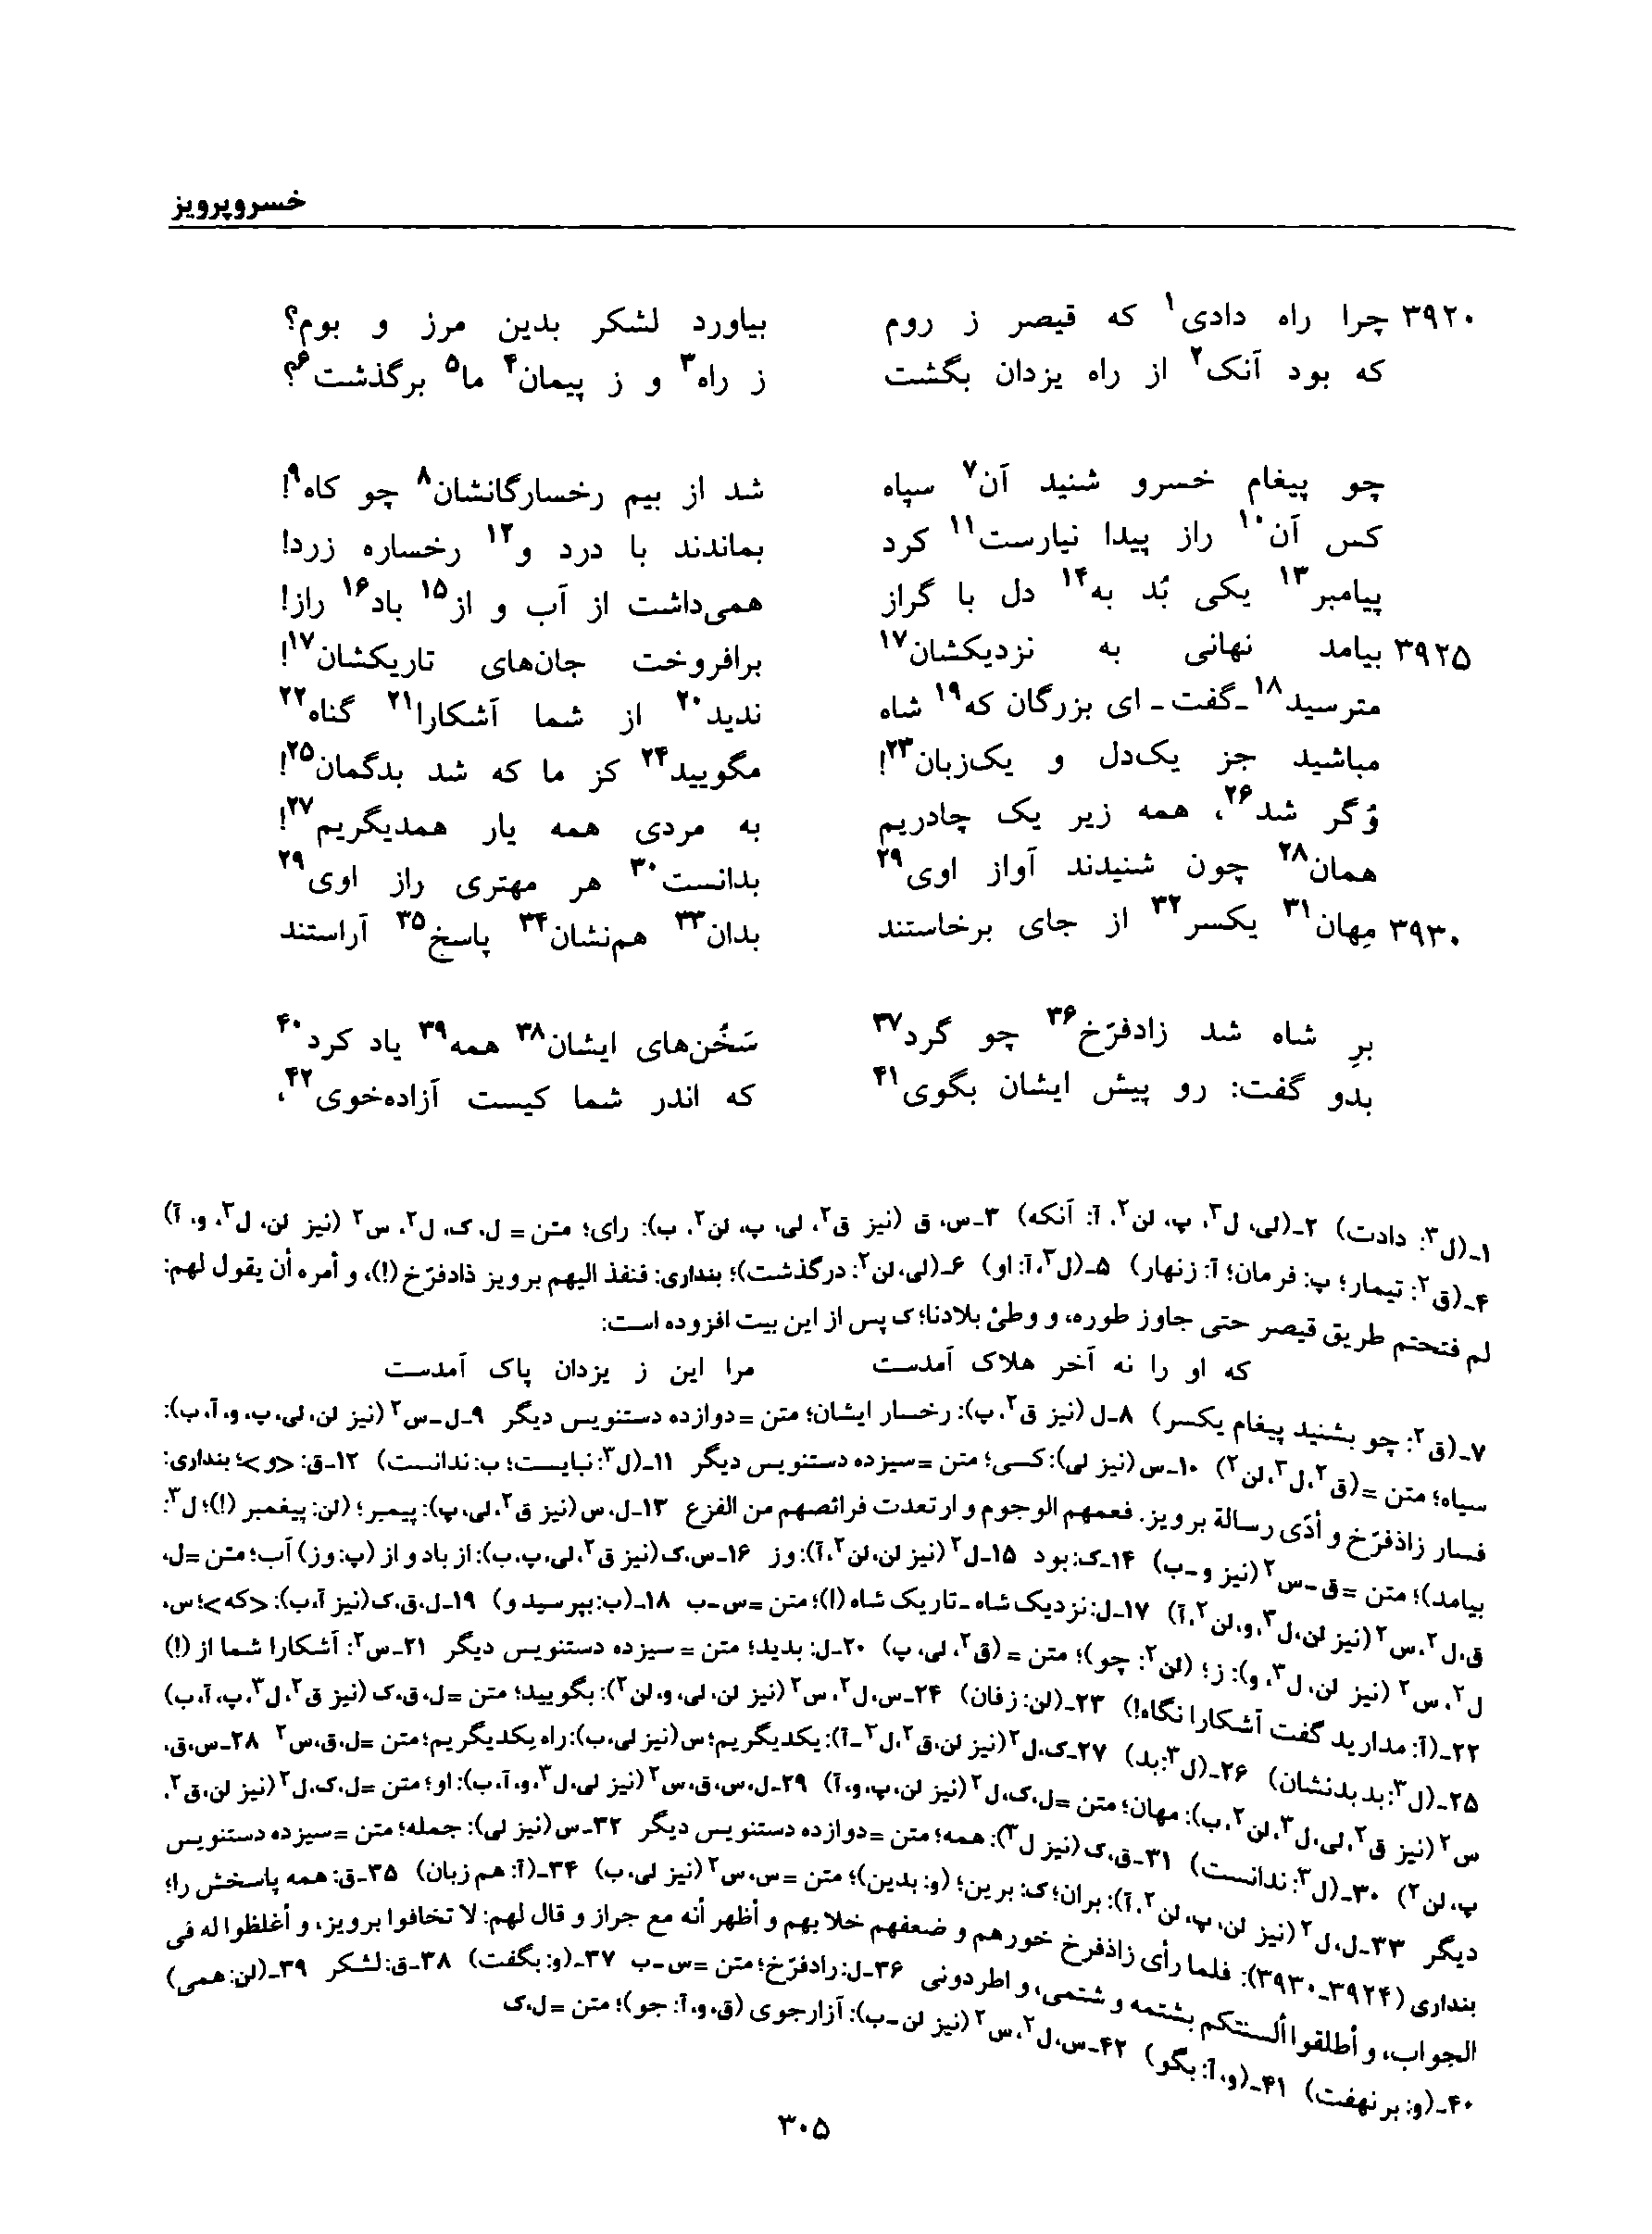 خسروپرویز
۳۹۲۰ چرا راه دادی۱ که قیصر ز روم بیاورد لشکر بدین مرز و بوم؟
که بود آنک۲ از راه یزدان بگشت ز راه۳ و ز پیمان۴ ما۵ برگذشت۶؟
چو پیغام خسرو شنید آن۷ سپاه شد از بیم رخسارگانشان۸ چو کاه۹!
کس آن۱۰ راز پیدا نیارست۱۱ کرد بماندند با درد و۱۲ رخساره زرد!
پیامبر۱۳ یکی بُد به۱۴ دل با گراز همی‌داشت از آب و از۱۵ باد۱۶ راز!
۳۹۲۵ بیامد نهانی به نزدیکشان۱۷ برافروخت جان‌های تاریکشان۱۷!
مترسید۱۸ـگفت ـ ای بزرگان که۱۹ شاه ندید۲۰ از شما آشکارا۲۱ گناه۲۲
مباشید جز یک‌دل و یک‌زبان۲۳! مگویید۲۴ کز ما که شد بدگمان۲۵!
وُگر شد۲۶، همه زیر یک چادریم به مردی همه یار همدیگریم۲۷!
همان۲۸ چون شنیدند آواز اوی۲۹ بدانست۳۰ هر مهتری راز اوی۲۹
۳۹۳۰ مِهان۳۱ یکسر۳۲ از جای برخاستند بدان۳۳ هم‌نشان۳۴ پاسخ۳۵ آراستند
برِ شاه شد زادفرّخ۳۶ چو گرد۳۷ سَخُن‌های ایشان۳۸ همه۳۹ یاد کرد۴۰
بدو گفت: رو پیش ایشان بگوی۴۱ که اندر شما کیست آزاده‌خوی۴۲،
۱ـ(ل۳: دادت) ۲ـ(لی، ل۳، پ، لن۲، آ: آنکه) ۳ـس، ق (نیز ق۲، لی، پ، لن۲، ب): رای؛ متن = ل، ک، ل۲، س۲ (نیز لن، ل۳، و، آ)
۴ـ(ق۲: تیمار؛ پ: فرمان؛ آ: زنهار) ۵ـ(ل۳،آ: او) ۶ـ(لی،لن۲: درگذشت)؛ بنداری: فنفذ الیهم برویز ذادفرّخ (!)، و أمره أن یقول لهم:
لم فتحتم طریق قیصر حتی جاوز طوره، و وطئ بلادنا؛ ک پس از این بیت افزوده است:
که او را نه آخر هلاک آمدست مرا این ز یزدان پاک آمدست
۷ـ(ق۲: چو بشنید پیغام یکسر) ۸ـل (نیز ق۲، پ): رخسار ایشان؛ متن =دوازده دستنویس دیگر ۹ـل‌ـس۲ (نیز لن، لی، پ، و، آ، ب):
سیاه؛ متن =(ق۲، ل۳، لن۲) ۱۰ـس (نیز لی): کسی؛ متن =سیزده دستنویس دیگر ۱۱ـ(ل۳: نبایست؛ ب: ندانست) ۱۲ـق: <و>؛ بنداری:
فسار زاذفرّخ و أدّی رسالة برویز. فعمهم الوجوم و ارتعدت فرائصهم من الفزع ۱۳ـل، س (نیز ق۲، لی، پ): پیمبر؛ (لن: پیغمبر (!)؛ ل۳:
بیامد)؛ متن =ق‌ـس۲ (نیز و‌ـب) ۱۴ـک: بود ۱۵ـل۲ (نیز لن، لن۲، آ): وز ۱۶ـس، ک (نیز ق۲، لی، پ، ب): از باد و از (پ: وز) آب؛ متن =ل،
ق، ل۲، س۲ (نیز لن، ل۳، و، لن۲، آ) ۱۷ـل: نزدیک شاه ـ تاریک شاه (!)؛ متن =س‌ـب ۱۸ـ(ب: بپرسید و) ۱۹ـل، ق، ک (نیز آ، ب): <که>؛ س،
ل۲، س۲ (نیز لن، ل۳، و): ز؛ (لن۲: چو)؛ متن = (ق۲، لی، پ) ۲۰ـل: بدید؛ متن = سیزده دستنویس دیگر ۲۱ـس۲: آشکارا شما از (!)
۲۲ـ(آ: مدارید گفت آشکارا نگاه!) ۲۳ـ(لن: زفان) ۲۴ـس، ل۲، س۲ (نیز لن، لی، و، لن۲): بگویید؛ متن =ل، ق، ک (نیز ق۲، ل۳، پ، آ، ب)
۲۵ـ(ل۳: بد بدنشان) ۲۶ـ(ل۳: بد) ۲۷ـک، ل۲ (نیز لن، ق۲، ل۳‌ـآ): یکدیگریم؛ س (نیز لی، ب): راه یکدیگریم؛ متن =ل، ق، س۲ ۲۸ـس، ق،
س۲ (نیز ق۲، لی، ل۳، لن۲، ب): مهان؛ متن =ل، ک، ل۲ (نیز لن، پ، و، آ) ۲۹ـل، س، ق، س۲ (نیز لی، ل۳، و، آ، ب): او؛ متن =ل، ک، ل۲ (نیز لن، ق۲،
پ، لن۲) ۳۰ـ(ل۳: ندانست) ۳۱ـق، ک (نیز ل۳): همه؛ متن =دوازده دستنویس دیگر ۳۲ـس (نیز لی): جمله؛ متن =سیزده دستنویس
دیگر ۳۳ـل، ل۲ (نیز لن، پ، لن۲، آ): بران؛ ک: برین؛ (و: بدین)؛ متن =س، س۲ (نیز لی، ب) ۳۴ـ(آ: هم زبان) ۳۵ـق: همه پاسخش را؛
بنداری (۳۹۲۴ـ۳۹۳۰): فلما رأی زاذفرخ خورهم و ضعفهم خلا بهم و أظهر أنه مع جراز و قال لهم: لا تخافوا برویز، و أغلظوا له فی
الجواب، و أطلقوا ألسنتکم بشتمه و شتمی، و اطردونی ۳۶ـل: رادفرّخ؛ متن =س‌ـب ۳۷ـ(و: بگفت) ۳۸ـق: لشکر ۳۹ـ(لن: همی)
۴۰ـ(و: بر نهفت) ۴۱ـ(و، آ: بگو) ۴۲ـس، ل۲، س۲ (نیز لن‌ـب): آزارجوی (ق، و، آ: جو)؛ متن =ل، ک
۳۰۵